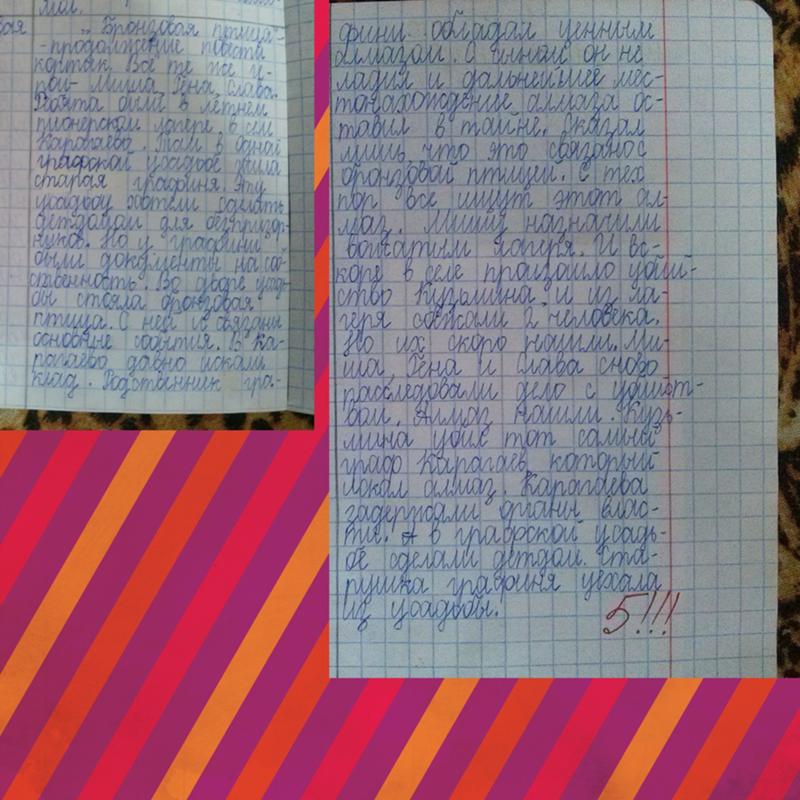 „Бронзовая птица"-
- продолжение повести
кортик. Все те же ге-
рои- Миша Гена Слава.
Ребята были в летнем
пионерском лагере в селе
Карагаево. Там в одной
графской усадьбе жила
старая графиня. Эту
усадьбу хотели сделать
детдадом для безпризор-
ников. Но у графини
были документы на соб-
ственность. Во дворе усадь-
бы стояла бронзовая
птица. С ней и связаны
основные события. В Ка-
рагаево давно искали
клад. Родственник гра-
фини обладал ценным
алмазом. С сыном он не
ладил и дальнейшее мес-
тонахождение алмаза ос-
тавил в тайне. Сказал
лишь что это связано с
бронзовой птицей. С тех
пор все ищут этот ал-
маз. Мишу назначили
вожатым лагеря. И вс-
коре в селе произошло убий-
ство Кузьмина и из ла-
геря сбежали 2 человека.
Но их скоро нашли. Ми-
ша, Гена и Слава снова
расследовали дело с убийст-
вом. Алмаз нашли. Кузь-
мина убил тот самый
граф Карагаев, который
искал алмаз. Карагаева
задержали органы влас-
ти. А в графской усадь-
бе сделали детдом. Ста-
рушка графиня уехала
из усадьбы.
5!!!